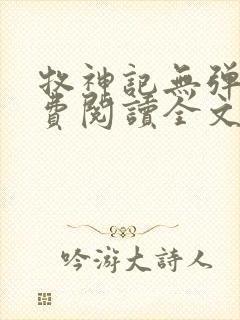 牧神記無彈
費閱讀全文
吟游大詩人